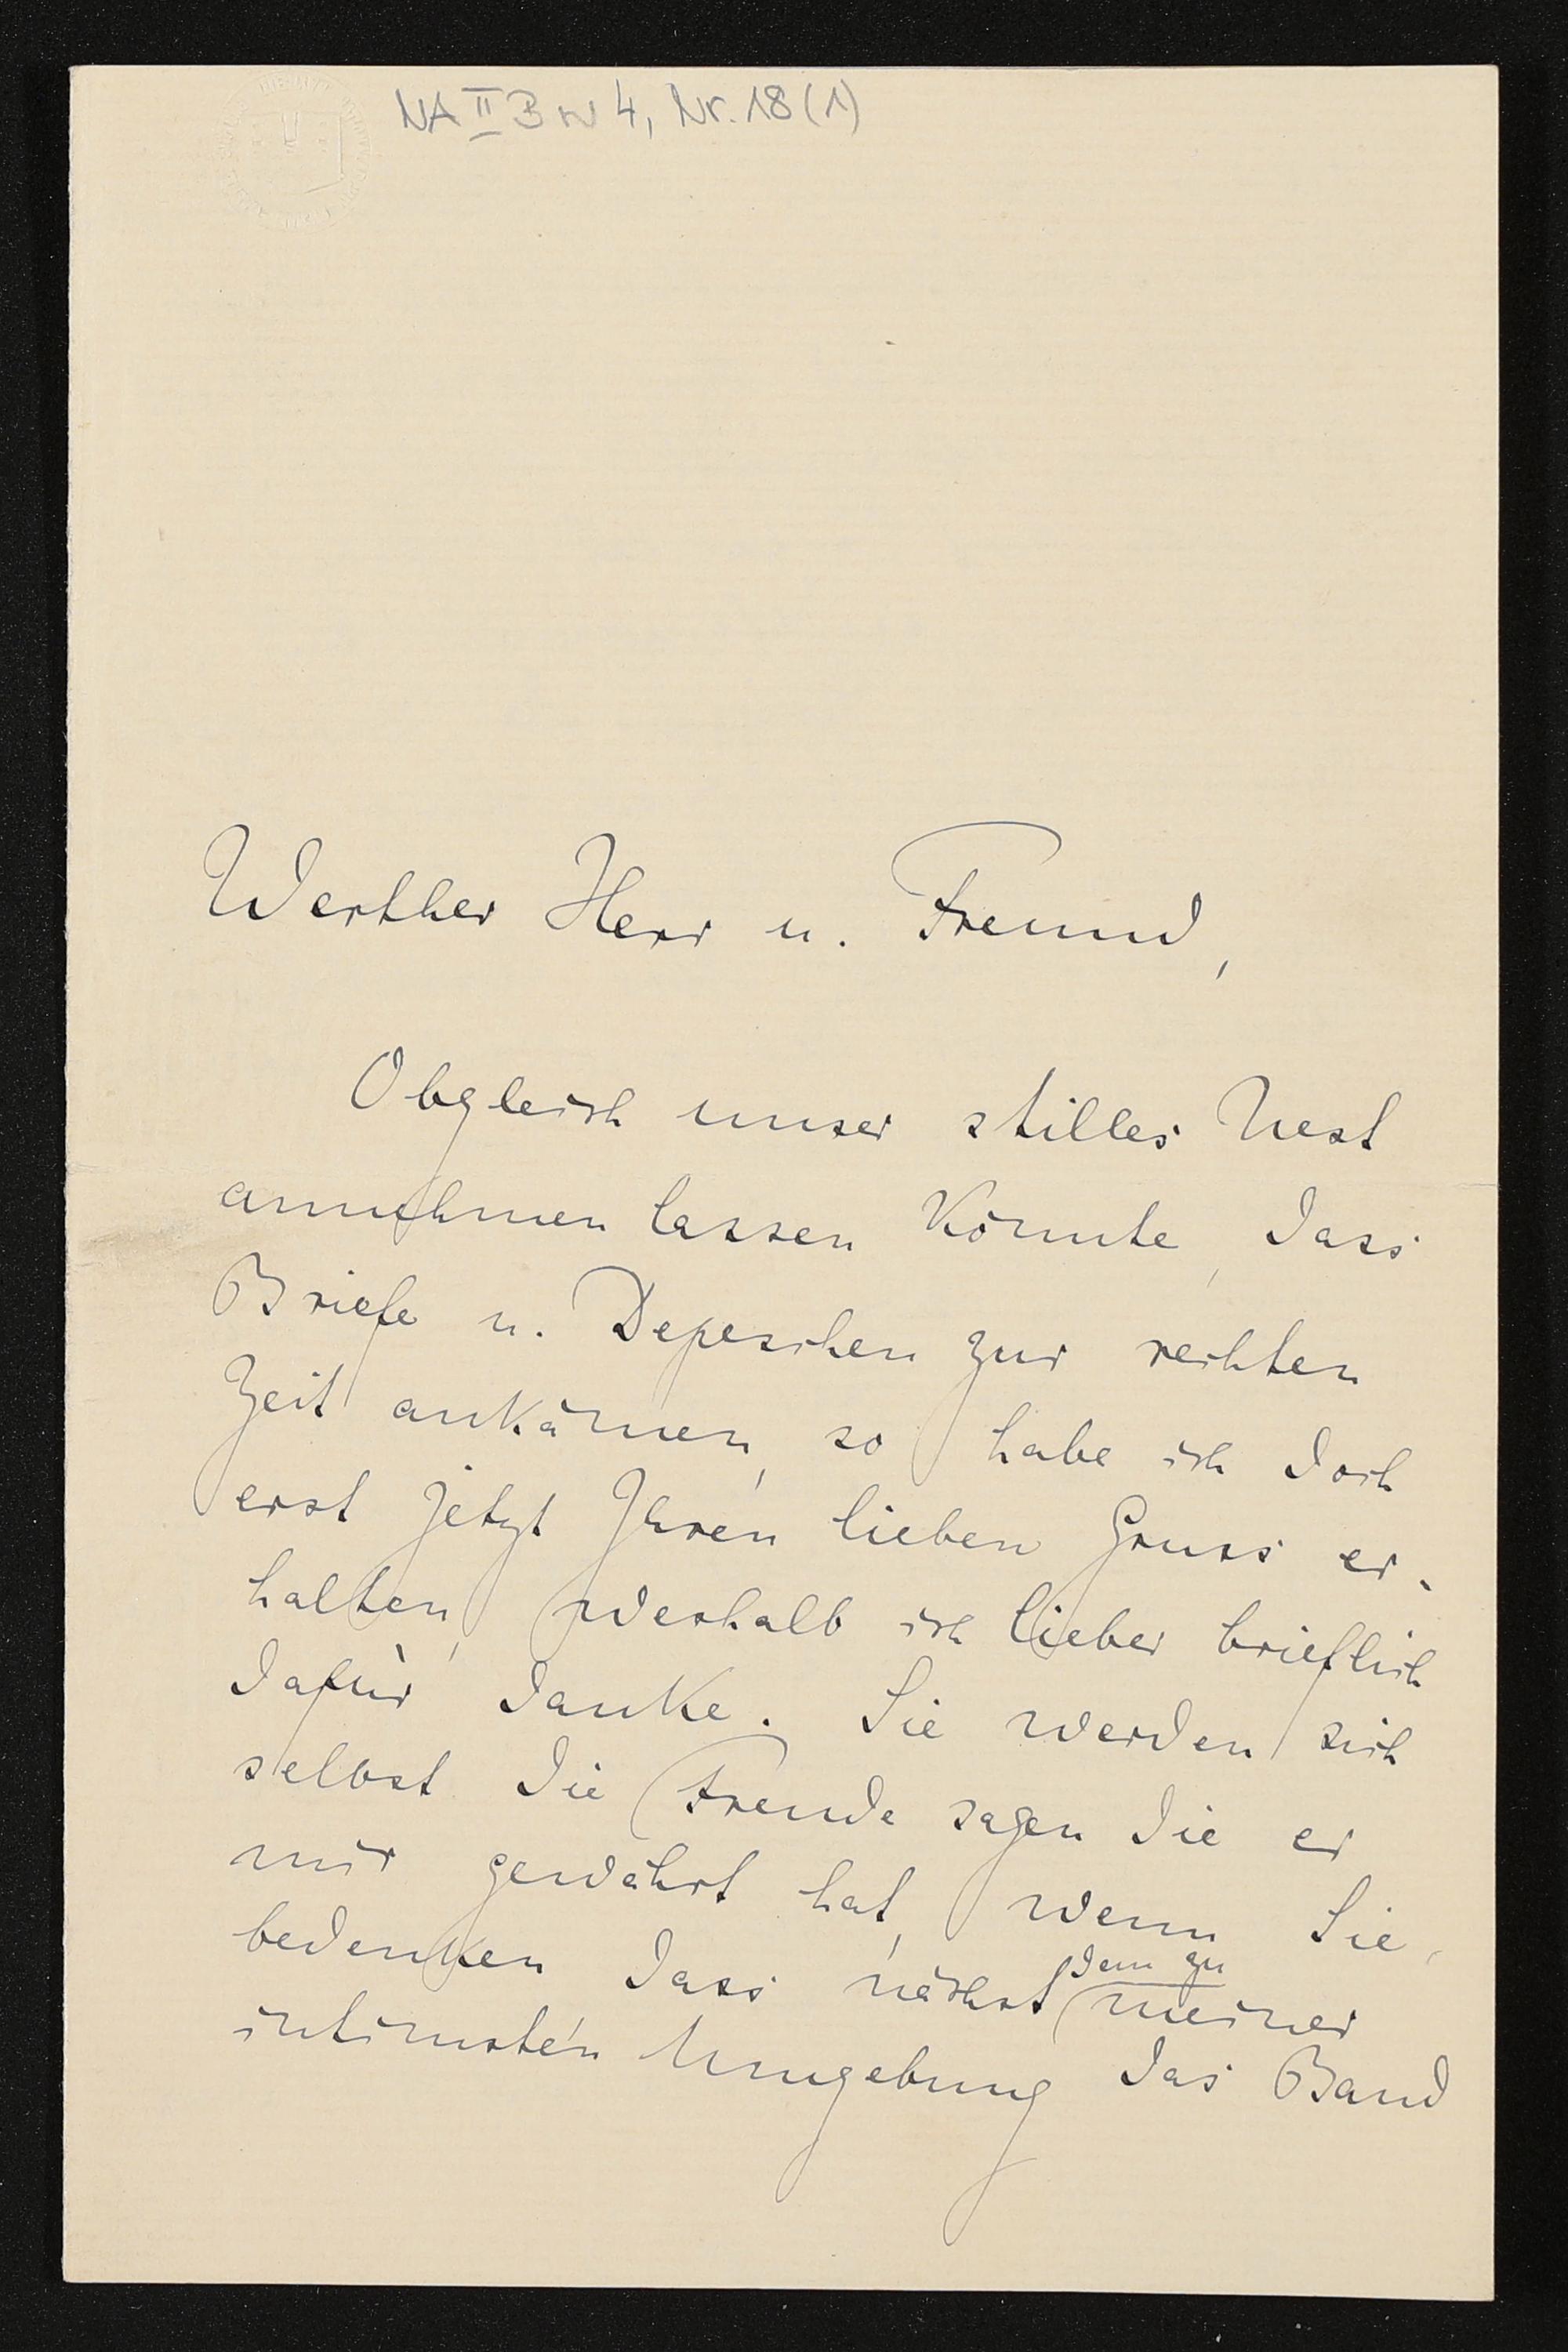 NA II B w 4, Nr. 18 (1)
Werther Herr u. Freund,
Obgleich unser stilles Nest
annehmen lassen könnte, dass
Briefe u. Depeschen zur rechten
Zeit ankämen, so habe ich doch
erst jetzt Ihren lieben Gruss er-
halten, weshalb ich lieber brieflich
dafür danke. Sie werden sich
selbst die Freude sagen die er
mir gewährt hat, wenn Sie
bedenken dass nächst dem zu meiner
intimsten Umgebung das Band